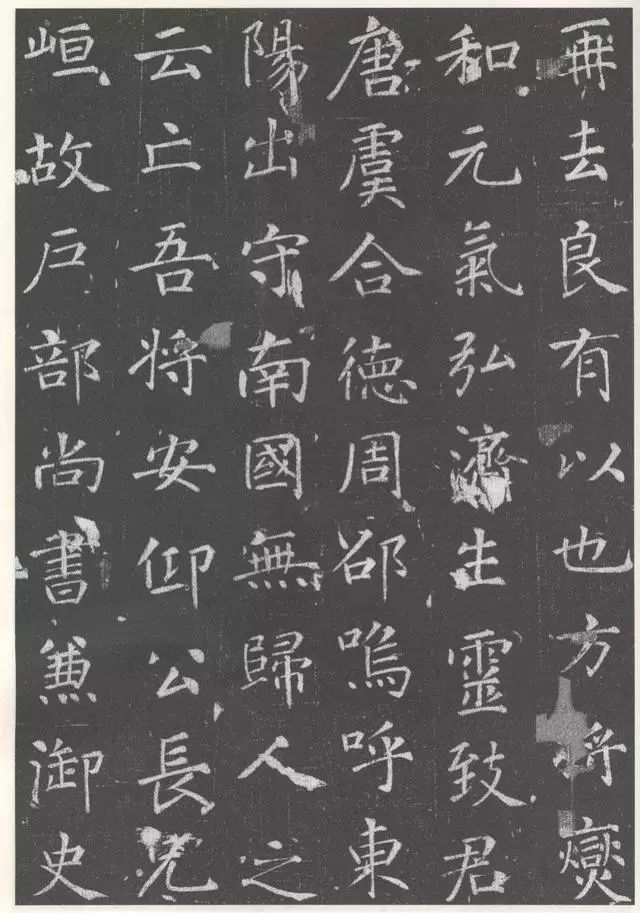 再去良有以也方將爕
和元氣弘濟生靈致君
唐虞合德周邵嗚呼東
陽出守南國無歸人之
云亡吾將安仰公長兄
峘故戶部尚書兼御史